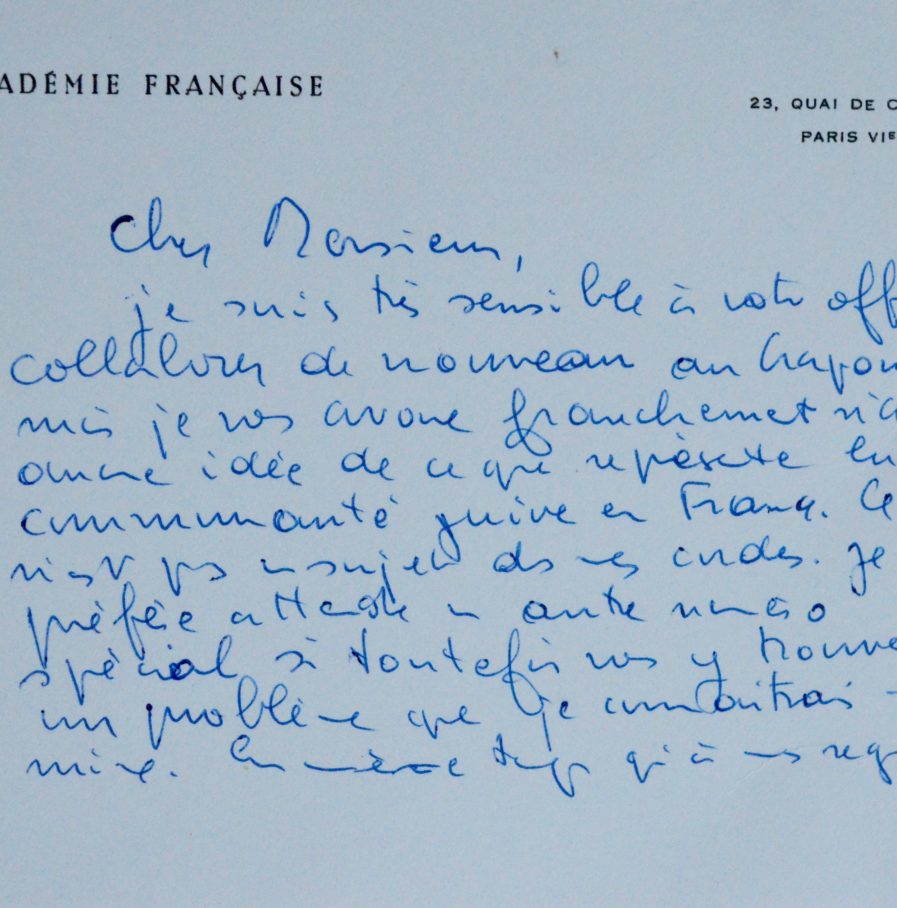 ADÉMIE FRANÇAISE
23, QUAI DE C
PARIS VIᴱ
Cher Monsieur,
je suis très sensible à votre off
collaborer de nouveau au Crapou
mais je vous avoue franchement n'a
aucune idée de ce que représente la
communauté juive en France. Ce
n'est pas un sujet dans mes cordes. Je
préfère attendre un autre numéro
spécial si toutefois vous y trouve
un problème que je connaitrais
mieux. En même temps qu'à mes reg